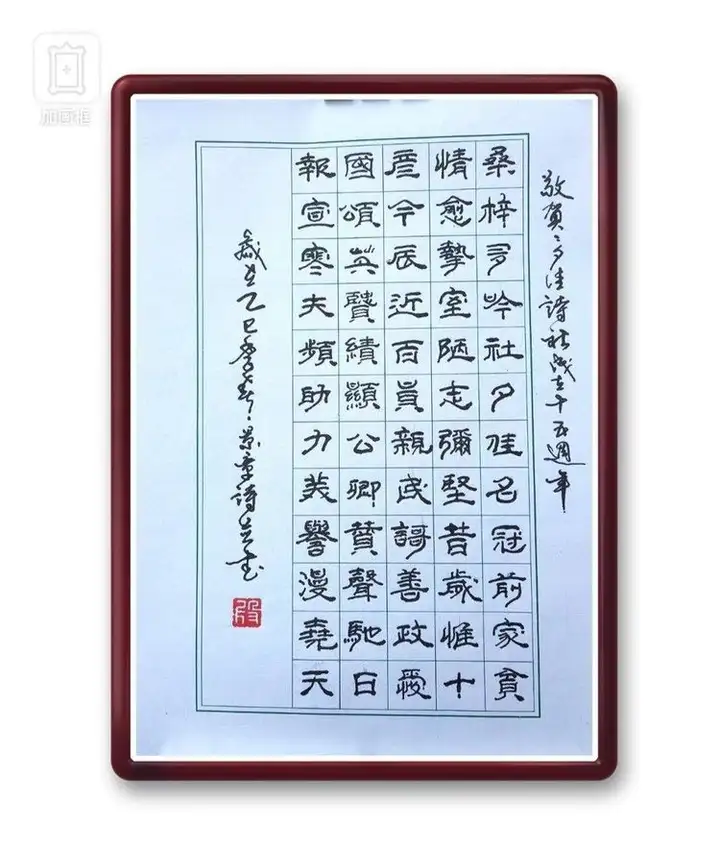 加画框
敬賀：夕佳詩社成立十五週年
桑梓多吟社夕佳名冠前家貧
情愈摯室陋志彌堅昔歲惟十
彥今辰近百員親民謌善政愛
國頌英賢績顯公卿贊聲馳日
報宣寒夫頻助力美譽漫堯天
歲在乙巳季春·景章詩並書